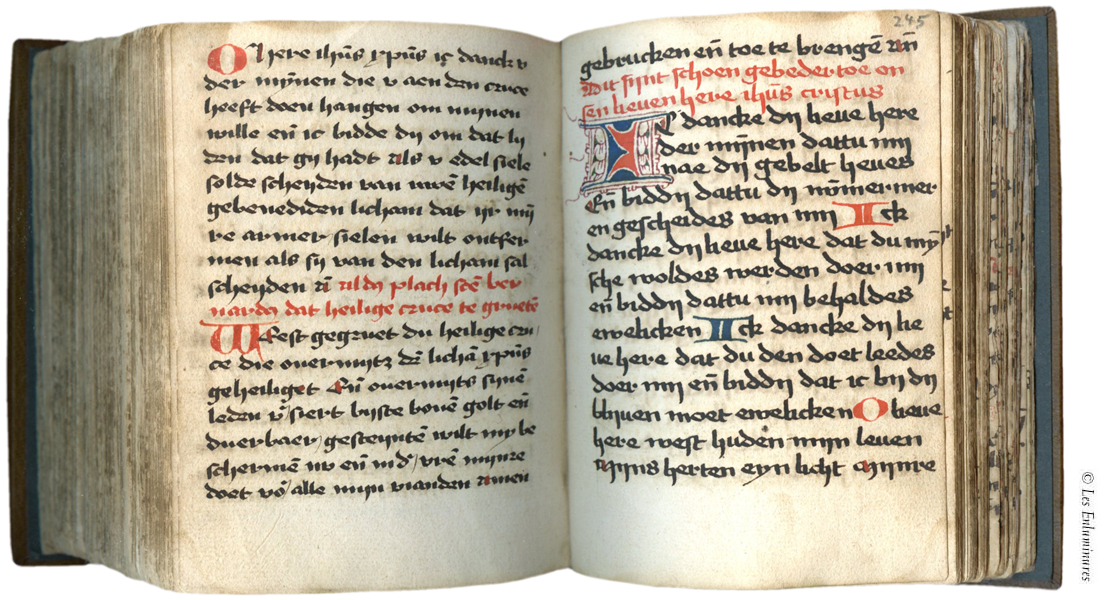 O here ihūs xpūs ic danck v
der mỹnen die v aen den cruce
heeft doen hangen om mijnen
wille eñ ic bidde dij om dat lij
den dat gij hadt als v edel siele
solde scheyden van uwē heiligē
gebenediden licham dat ijr mij
re armer sielen wilt ontfer
men als sij van den licham sal
scheyden
plach
vardꝰ dat heilige cruce te gruetē
West gegruet du heilige cru
ce die ouermijtz dē lichā xpūs
geheiliget Eñ ouermijts sijnē
leden siert bouē golt eñ
duerbaer gesteyntē wilt my be
schermē nv eñ vrē mijnre
doet alle mijn vianden amen
245
gebrucken eñ toe te brengē
Dit sijnt schoen gebeder toe on
sen lieuen here ihūs cristus
IC dancke dij lieue here
der mijnnen dattu mij
nae dij gebelt heues
Eñ biddij dattu dij nūmermer
en gescheides van mij Ick
dancke dij lieue here dat du mỹ
sche woldes werden doer mij
eñ biddij dattu mij behaldes
ewelicken Ick dancke dij lie
ue here dat du den doet leedes
doer mij eñ biddij dat ic bij dij
blijuen moet ewelicken O lieue
here west huden mijn leuen
Mijns herten eyn licht Mijnre
© Les Enluminures